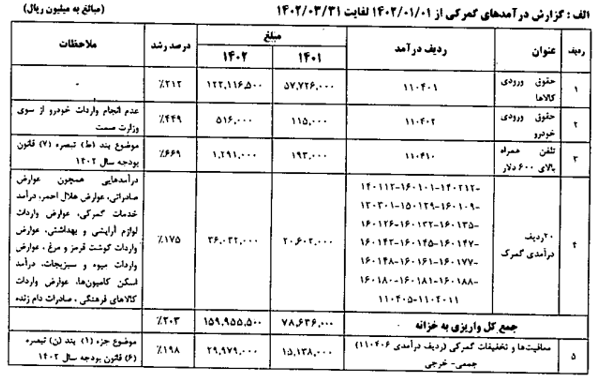 (مبالغ به میلیون ریال)
الف : گزارش درآمدهای گمرکی از ۱۴۰۲/۰۱/۰۱ لغایت ۱۴۰۲/۰۳/۳۱
ردیف عنوان ردیف درآمد مبلغ درصد رشد ملاحظات
۱۴۰۱ ۱۴۰۲
۱ حقوق ورودی کالاها ۱۱۰۴۰۱ ۵۷,۷۲۶,۰۰۰ ۱۲۲,۱۱۶,۵۰۰ ٪۲۱۲ -
۲ حقوق ورودی خودرو ۱۱۰۴۰۲ ۱۱۵,۰۰۰ ۵۱۶,۰۰۰ ٪۴۴۹ عدم انجام واردات خودرو از سوی
وزارت صمت
۳ تلفن همراه بالای ۶۰۰ دلار ۱۱۰۴۱۰ ۱۹۳,۰۰۰ ۱,۲۹۱,۰۰۰ ٪۶۶۹ موضوع بند (ط) تبصره (۷) قانون
بودجه سال ۱۴۰۲
۴ ۲۰ردیف درآمدی گمرک
۱۴۰۱۱۲-۱۶۰۱۰۱-۱۴۰۲۱۲-
۱۲۰۳۰۱-۱۵۰۱۲۹-۱۶۰۱۰۹-
۱۶۰۱۲۶-۱۶۰۱۳۲-۱۶۰۱۳۵-
۱۶۰۱۴۲-۱۶۰۱۴۵-۱۶۰۱۴۷-
۱۶۰۱۴۸-۱۶۰۱۶۱-۱۶۰۱۷۷-
۱۶۰۱۸۰-۱۶۰۱۸۱-۱۶۰۱۸۸-
۱۱۰۴۰۵-۱۱۰۲۰۱۱
۲۰,۶۰۲,۰۰۰ ۳۶,۰۳۲,۰۰۰ ٪۱۷۵
درآمدهایی همچون عوارض
صادراتی، عوارض هلال احمر، درآمد
خدمات گمرکی، عوارض واردات
لوازم آرایشی و بهداشتی، عوارض
واردات گوشت قرمز و مرغ ، عوارض
واردات میوه و سبزیجات، درآمد
اسکن کامیون‌ها، عوارض واردات
کالاهای فرهنگی ، صادرات دام زنده
جمع کل واریزی به خزانه ۷۸,۶۳۶,۰۰۰ ۱۵۹,۹۵۵,۵۰۰ ٪۲۰۳
۵ معافیت‌ها و تخفیفات گمرکی (ردیف درآمدی ۱۱۰۴۰۶)
جمعی- خرجی ۱۵,۱۳۸,۰۰۰ ۲۹,۹۷۹,۰۰۰ ٪۱۹۸ موضوع جزء (۱) بند (ن) تبصره
(۶) قانون بودجه سال ۱۴۰۲